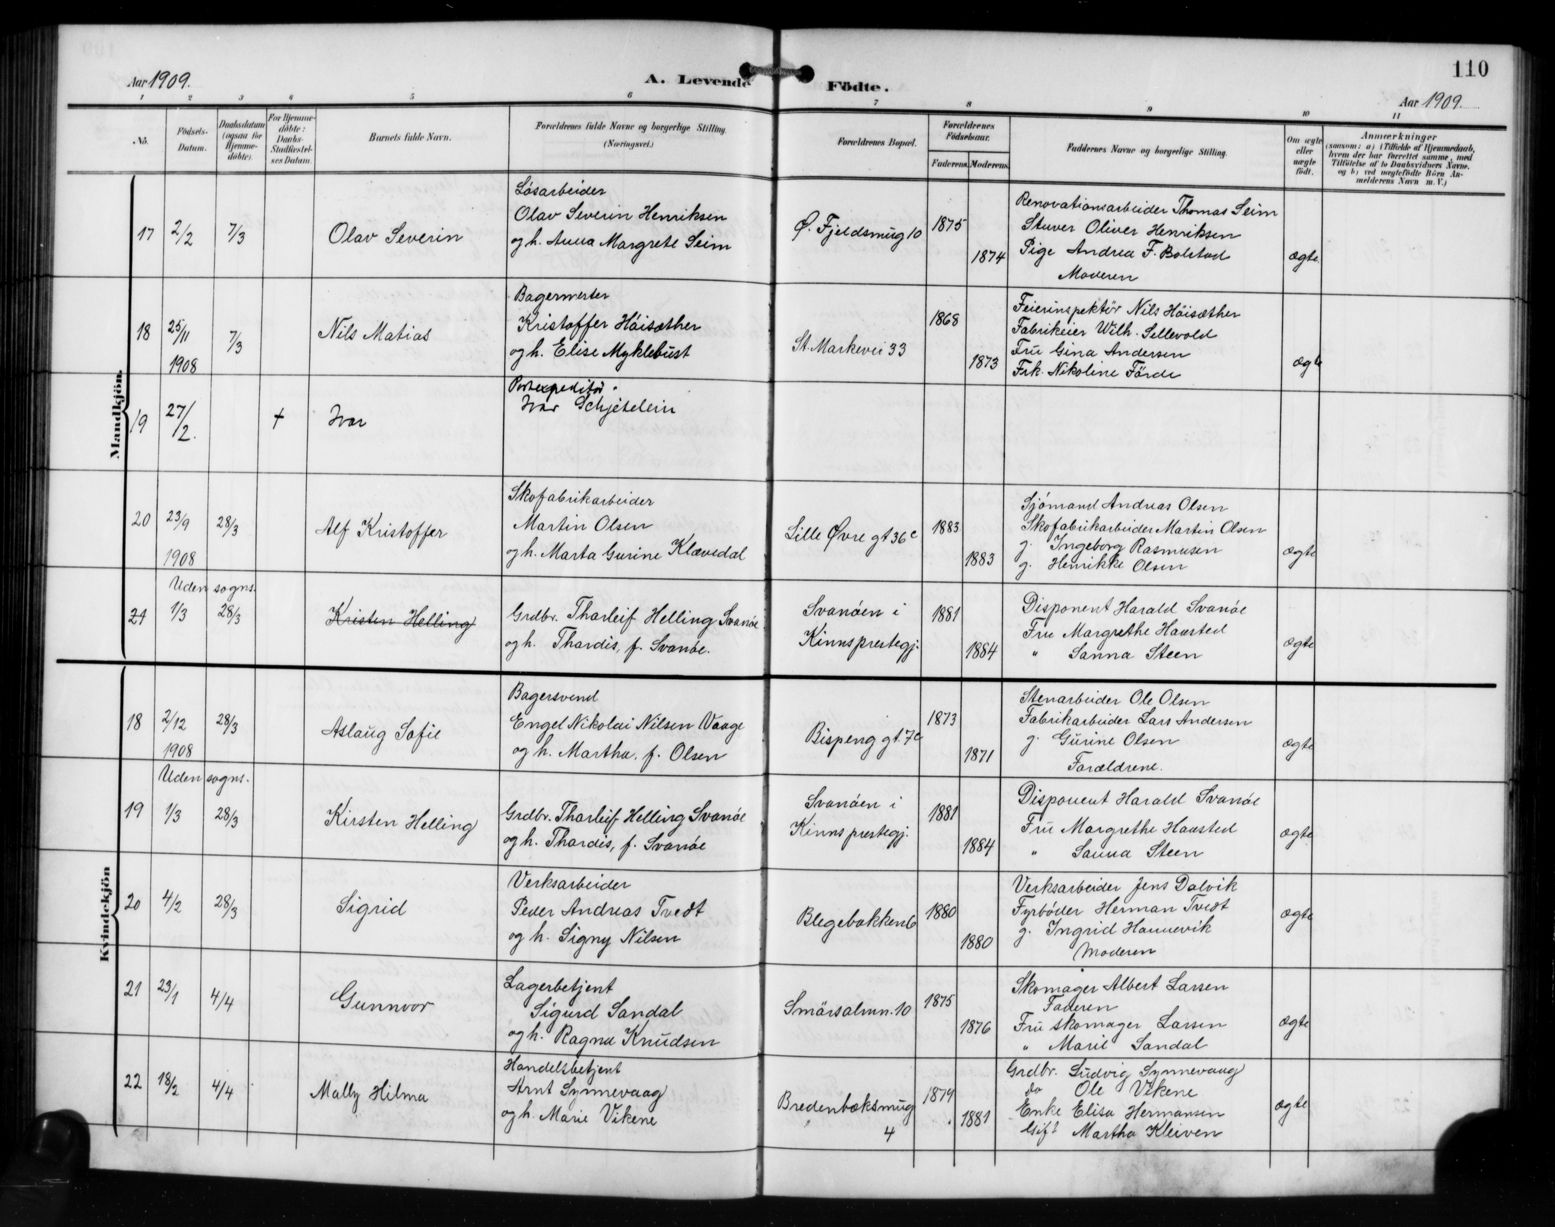 110
Aar 1909.
A. Levende Födte.
Aar 1909.
1 2 3 4 5 6 7 8 9 10 11
No.
Födsels-Datum.
Daabsdatum (ogsaa for Hjemmedöbte).
For Hjemmedöbte: Daabs-Stadfæstelses Datum.
Barnets fulde Navn.
Forældrenes fulde Navne og borgerlige Stilling. (Næringsvei.)
Forældrenes Bopæl.
Forældrenes Födselsaar.
Faderens. Moderens.
Faddernes Navne og borgerlige Stilling.
Om ægte eller uægte födt.
Anmærkninger
(saasom: a) i Tilfælde af Hjemmedaab, hvem der har forrettet samme, med Tilföielse af to Daabsvidners Navne, og b) ved uægtefödte Börn Anmelderens Navn m. V.)
Mandkjön.
17 2/2 7/3 Olav Severin
Lösarbeider
Olav Severin Henriksen
og h. Anna Margrete Seim
Ø. Fjeldsmug 10
1875
1874
Renovationsarbeider Thomas Seim
Stuver Oliver Henriksen
Pige Andrea F. Bolstad
Moderen
ægte
18 25/11 1908 7/3 Nils Matias
Bagermester
Kristoffer Höisæther
og h. Elise Myklebust
St. Markevei 33
1868
1873
Feierinspektör Nils Höisæther
Fabrikeier Wilh. Sellevold
Fru Gina Andersen
Frk. Nikoline Förde
ægte
19 27/2. + Ivar
Postexpeditör
Ivar Schjelelein
20 23/9 1908 28/3 Alf Kristoffer
Skofabrikarbeider
Martin Olsen
og h. Marta Gurine Klævedal
Lille Øvre gt 36c
1883
1883
Sjömand Andreas Olsen
Skofabrikarbeider Martin Olsen
g. Ingeborg Rasmusen
g. Henrikke Olsen
ægte
Uden sogns.
21 1/3 28/3 Kristen Helling
Grdbr. Tharleif Helling Svanöe
og h. Thardis, f. Svanöe.
Svanöen i
Kinns prestegj.
1881
1884
Disponent Harald Svanöe
Fru Margrethe Haasted
" Sanna Steen
ægte
Kvindekjön
18 2/12 1908 28/3 Aslaug Sofie
Bagersvend
Engel Nikolai Nilsen Vaage
og h. Martha, f. Olsen
Bispeng gt. 7c
1873
1871
Stenarbeider Ole Olsen
Fabrikarbeider Lars Andersen
g. Gurine Olsen
Forældrene.
ægte
Uden sogns.
19 1/3 28/3 Kirsten Helling
Grdbr. Tharleif Helling Svanöe
og h. Thardis, f. Svanöe
Svanöen i
Kinns prestegj.
1881
1884
Disponent Harald Svanöe
Fru Margrethe Haasted
" Sanna Steen
ægte
20 4/2 28/3 Sigrid
Verksarbeider
Peder Andreas Tvedt
og h. Signy Nilsen
Blegebakken 6
1880
1880
Verksarbeider Jens Dalvik
Fyrböder Herman Tvedt
g. Ingrid Hannevik
Moderen
ægte
21 23/1 4/4 Gunnvor
Lagerbetjent
Sigurd Sandal
og h. Ragna Knudsen
Smörsalmn. 10
1875
1876
Skomager Albert Larsen
Faderen
Fru skomager Larsen
" Marie Sandal
ægte
22 18/2 4/4 Malby Hilma
Handelsbetjent
Arnt Synnevaag
og h. Marie Vikene
Bredenbæksmug
4
1879
1881
Grdbr. Ludvig Synnevaag
do Ole Vikene
Enke Elisa Hermansen
Gift Martha Kleiven
ægte